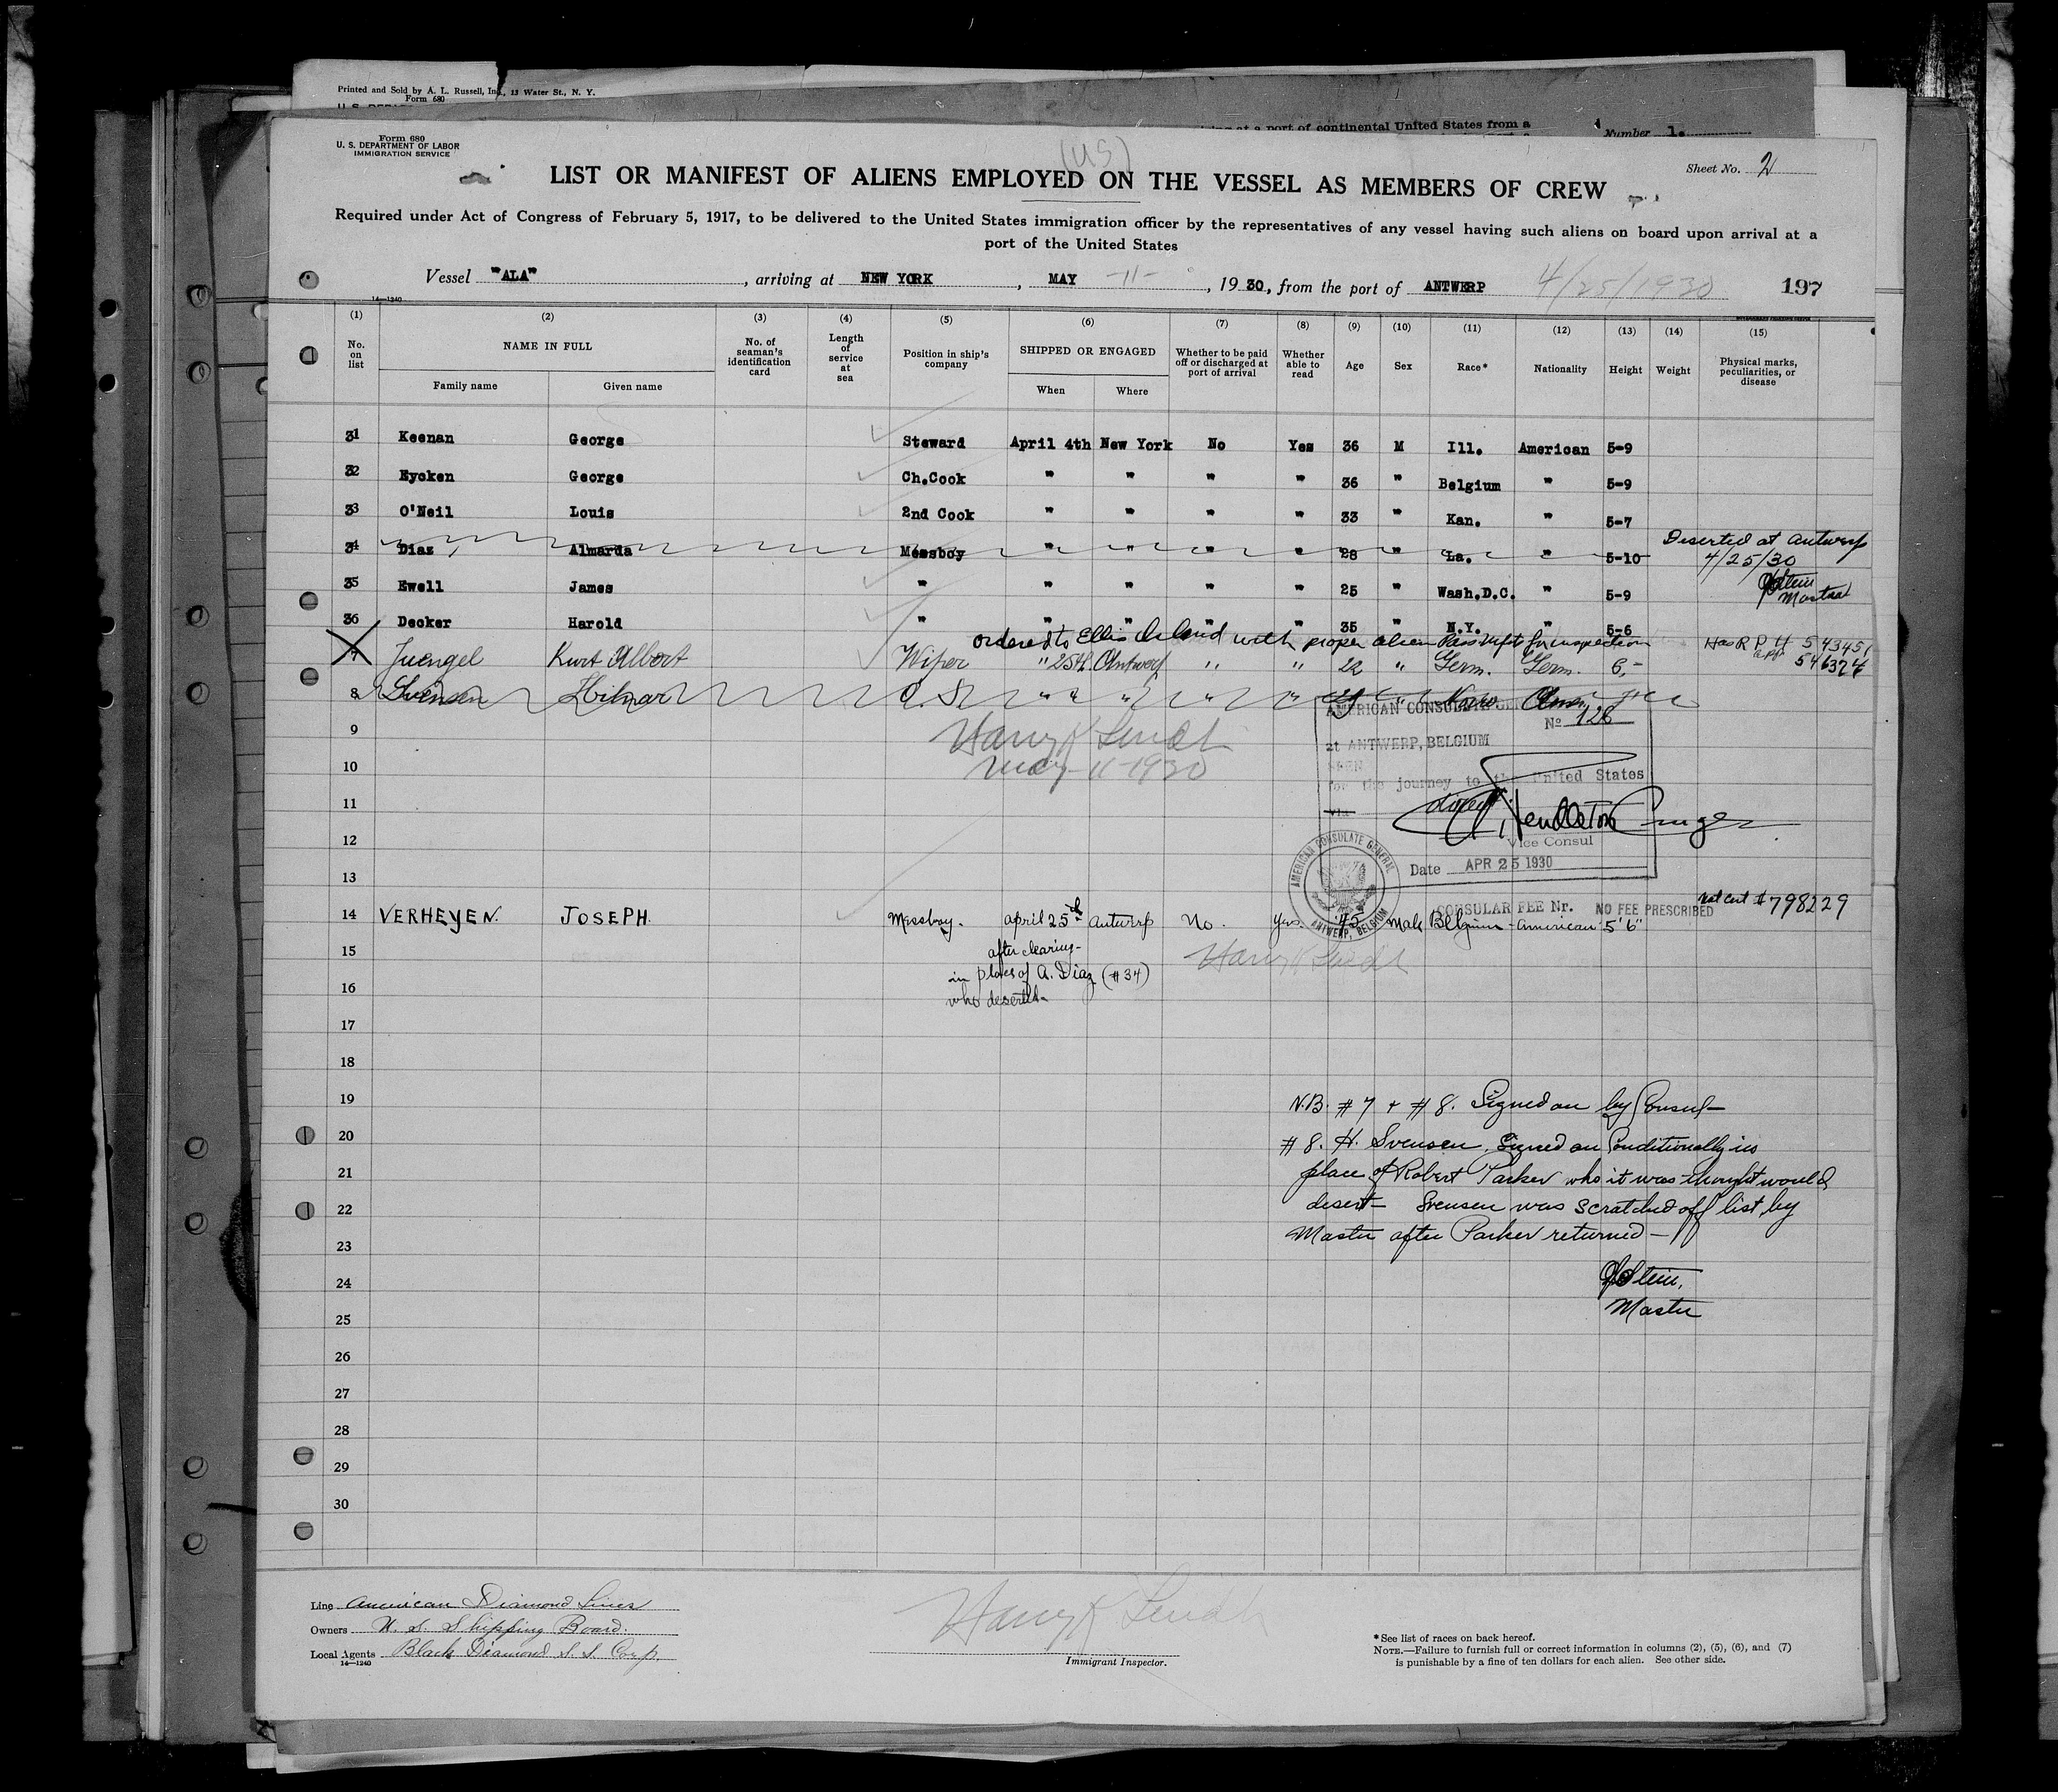 Printed and Sold by A. L. Russell, Inc., 13 Water St., N. Y.
Form 680
at a port of continental United States from a
Number 1.
Form 680
U. S. DEPARTMENT OF LABOR
IMMIGRATION SERVICE
(US)
Sheet No. 2
LIST OR MANIFEST OF ALIENS EMPLOYED ON THE VESSEL AS MEMBERS OF CREW
Required under Act of Congress of February 5, 1917, to be delivered to the United States immigration officer by the representatives of any vessel having such aliens on board upon arrival at a
port of the United States
Vessel "ALA", arriving at NEW YORK, MAY -11-, 1930, from the port of ANTWERP 4/25/1930 197
14—1240
(1) (2) (3) (4) (5) (6) (7) (8) (9) (10) (11) (12) (13) (14) (15)
No. on list
NAME IN FULL
Family name Given name
No. of seaman's identification card
Length of service at sea
Position in ship's company
SHIPPED OR ENGAGED
When Where
Whether to be paid off or discharged at port of arrival
Whether able to read
Age Sex Race* Nationality Height Weight
Physical marks, peculiarities, or disease
31 Keenan George Steward April 4th New York No Yes 36 M Ill. American 5-9
32 Eycken George Ch.Cook " " " " 36 " Belgium " 5-9
33 O'Neil Louis 2nd Cook " " " " 33 " Kan. " 5-7
34 Diaz Almarda Messboy " " " " 28 " La. " 5-10 Deserted at Antwerp
4/25/30
35 Ewell James " " " " " 25 " Wash.D.C. " 5-9
Stein
Master
36 Decker Harold " " " " " 35 " N.Y. " 5-6
ordered to Ellis Island with proper alien Pass Mfts for inspection
7 Juengel Kurt Albert Wiper " 25th Antwerp " " 22 " Germ. Germ. 6- Has R P # 543451
app 546374
8 Svensen Hilmar O. S. " " " " " " Norw. Amn.
9
Harry K Lindt
May-11-1930
10
11
12
13
AMERICAN CONSULATE GENERAL
No 126
at ANTWERP, BELGIUM
SEEN
for the journey to the United States
Via direct
Pendleton Cruger
Vice Consul
Date APR 25 1930
AMERICAN CONSULATE GENERAL
ANTWERP, BELGIUM
CONSULAR FEE Nr. NO FEE PRESCRIBED
Nat Cert # 798229
14 VERHEYEN. JOSEPH. Messboy. April 25th Antwerp No. Yes. 45 Male Belgium - American 5'6"
15
after clearing-
in place of A. Diaz (#34)
who deserted-
Harry K Lindt
16
17
18
19
N.B. #7 + #8. Signed on by Consul-
20
#8. H. Svensen, Signed on Conditionally in
21
place of Robert Parker who it was thought would
22
desert- Svensen was scratched off list by
23
Master after Parker returned-
24
Stein,
Master
25
26
27
28
29
30
Line American Diamond Lines
Owners U. S. Shipping Board.
Local Agents Black Diamond S. S. Corp.
14—1240
Harry K Lindt
Immigrant Inspector.
*See list of races on back hereof.
NOTE.—Failure to furnish full or correct information in columns (2), (5), (6), and (7)
is punishable by a fine of ten dollars for each alien. See other side.